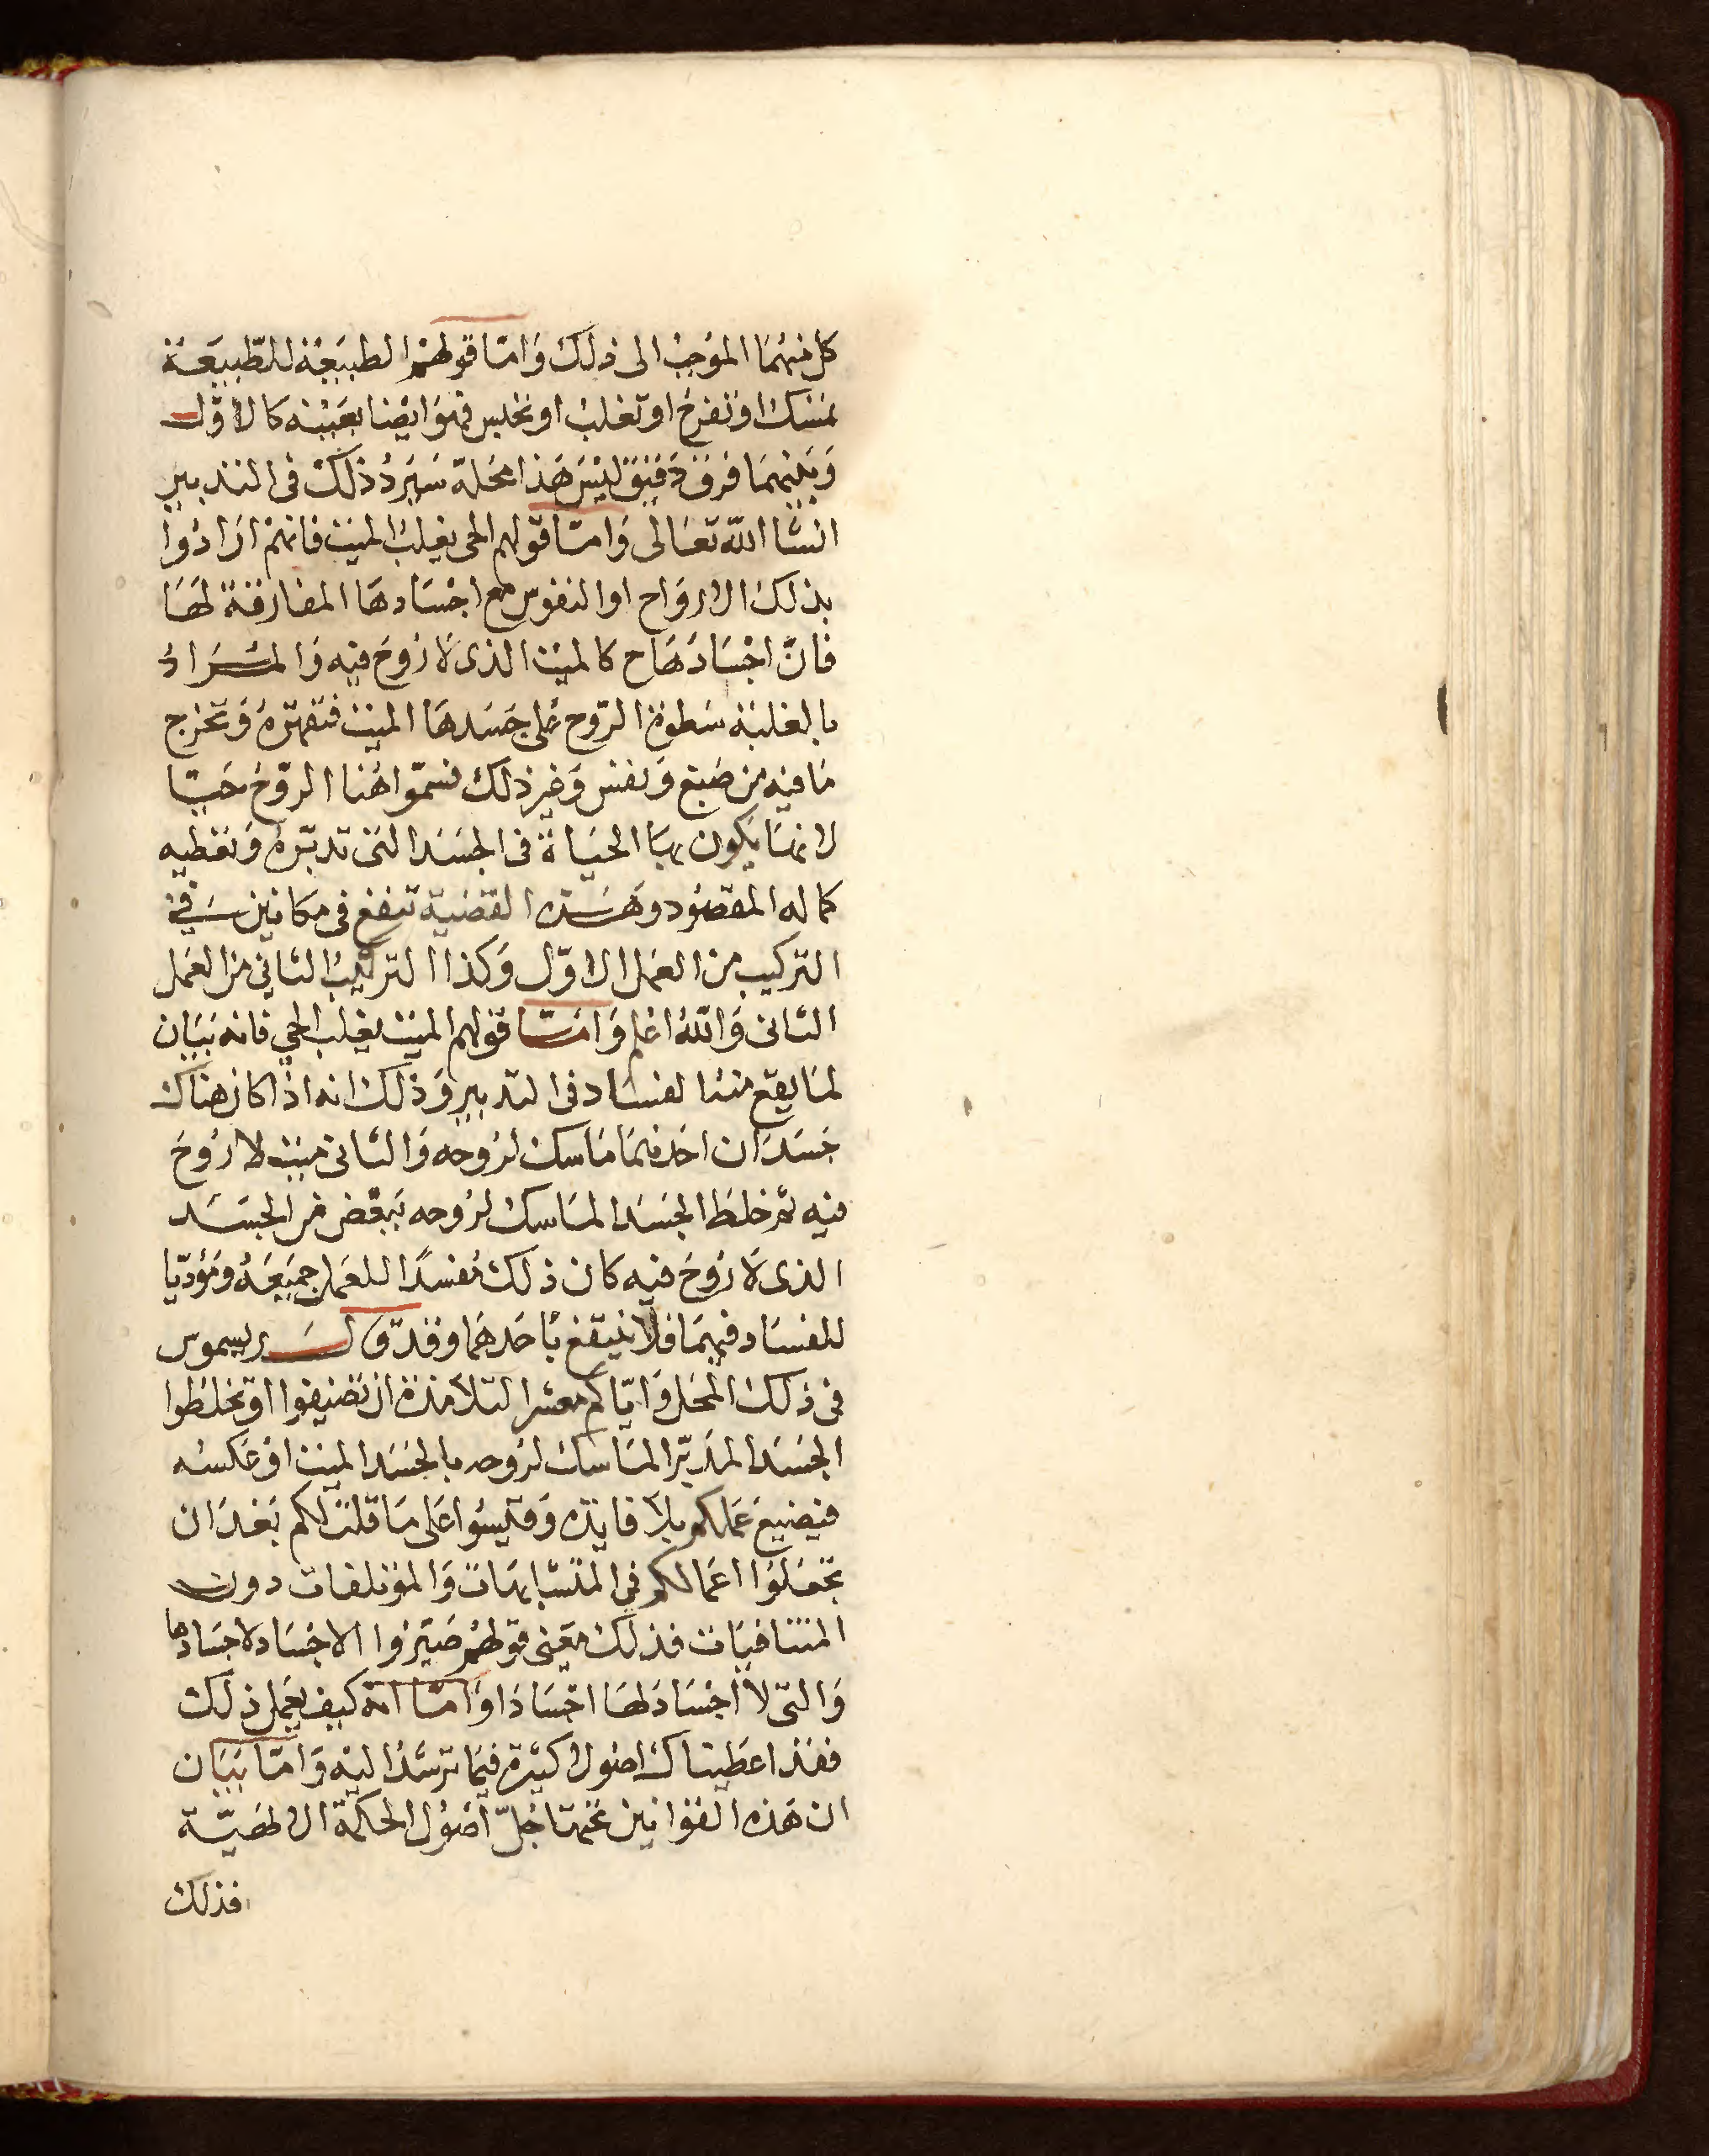 كل منهما الموجب الى ذلك وَامّا قولهم الطبيعَة للطّبيعَة
تمسك او تفرح او تغلب او تخلس فهو ايضا بعَيْنه كالاوّل
وَبَينهمَا فرق دَقيق ليْسَ هَذا محَله سَيَردُ ذلك فى التدبير
انشا الله تعَالى وَامّا قولهم الحى يغلبُ الميت فانهمْ ارَادُوا
بذلك الارواح او النفوس مع اجْسَادهَا المفارقة لهَا
فانّ اجْسَادهَا ح كالميْت الذى لا رُوحَ فيه وَالمرَادُ
بالغلبَة سَطوة الرّوح على جَسَدهَا الميت فتقهرهُ وَتخرج
مَا فيه من صَبغ وَنفس وَغير ذلك فسمّوا هُنا الرّوحُ حَيّا
لانهَا يَكون بهَا الحَيَاة فى الجسَد التى تدبّرهُ وَتعْطيه
كماله المقصُود وهَذه القضيَة تنفع فى مكانين فى
التركيب من العمَل الاوّل وَكذا التركيبُ الثانى من العمَل
الثانى وَاللهُ اعلم وَامّا قولهم الميت يغلب الحي فانه بيَان
لمَا يقع منه الفسَاد فى التدبير وَذلك انه اذا كان هناك
جَسَدَان احَدهمَا مَاسك لرُوحه وَالثانى ميت لا رُوحَ
فيه ثم خلط الجسَد المَاسك لرُوحه ببَعْض من الجسَد
الذى لا رُوحَ فيه كان ذلك مُفسدًا للعمَل جميعَهُ وَمؤدّيا
للفسَاد فيهمَا فلا ينتفع باحَدهمَا وقد قال ريسموس
فى ذلك المحَل وَايّاكم معشر التلامذة ان تضيفوا او تخلطوا
الجسَد المدَبّر المَاسك لرُوحه بالجسَد الميت اوْ عَكسُه
فيضيع عَملكم بلا فايدة وَقيسُوا عَلى مَا قلت لكم بَعْدَ ان
تجعَلوا اعمَالكم فى المتشابهَات وَالمؤتلفات دون
المتنافيَات فذلك معْنى قولهم صَيّرُوا الاجْسَاد لا اجسَادها
وَالتى لا اجْسَاد لهَا اجْسَادَا وَامّا انه كيف يعمَل ذلك
فقد اعطيناك اصُولا كثيرة فيما ترشدُ اليْه وَامّا بيَان
ان هَذه القوانين تحتهَا جُلّ اصُول الحكمَة الالهيّة
فذلك